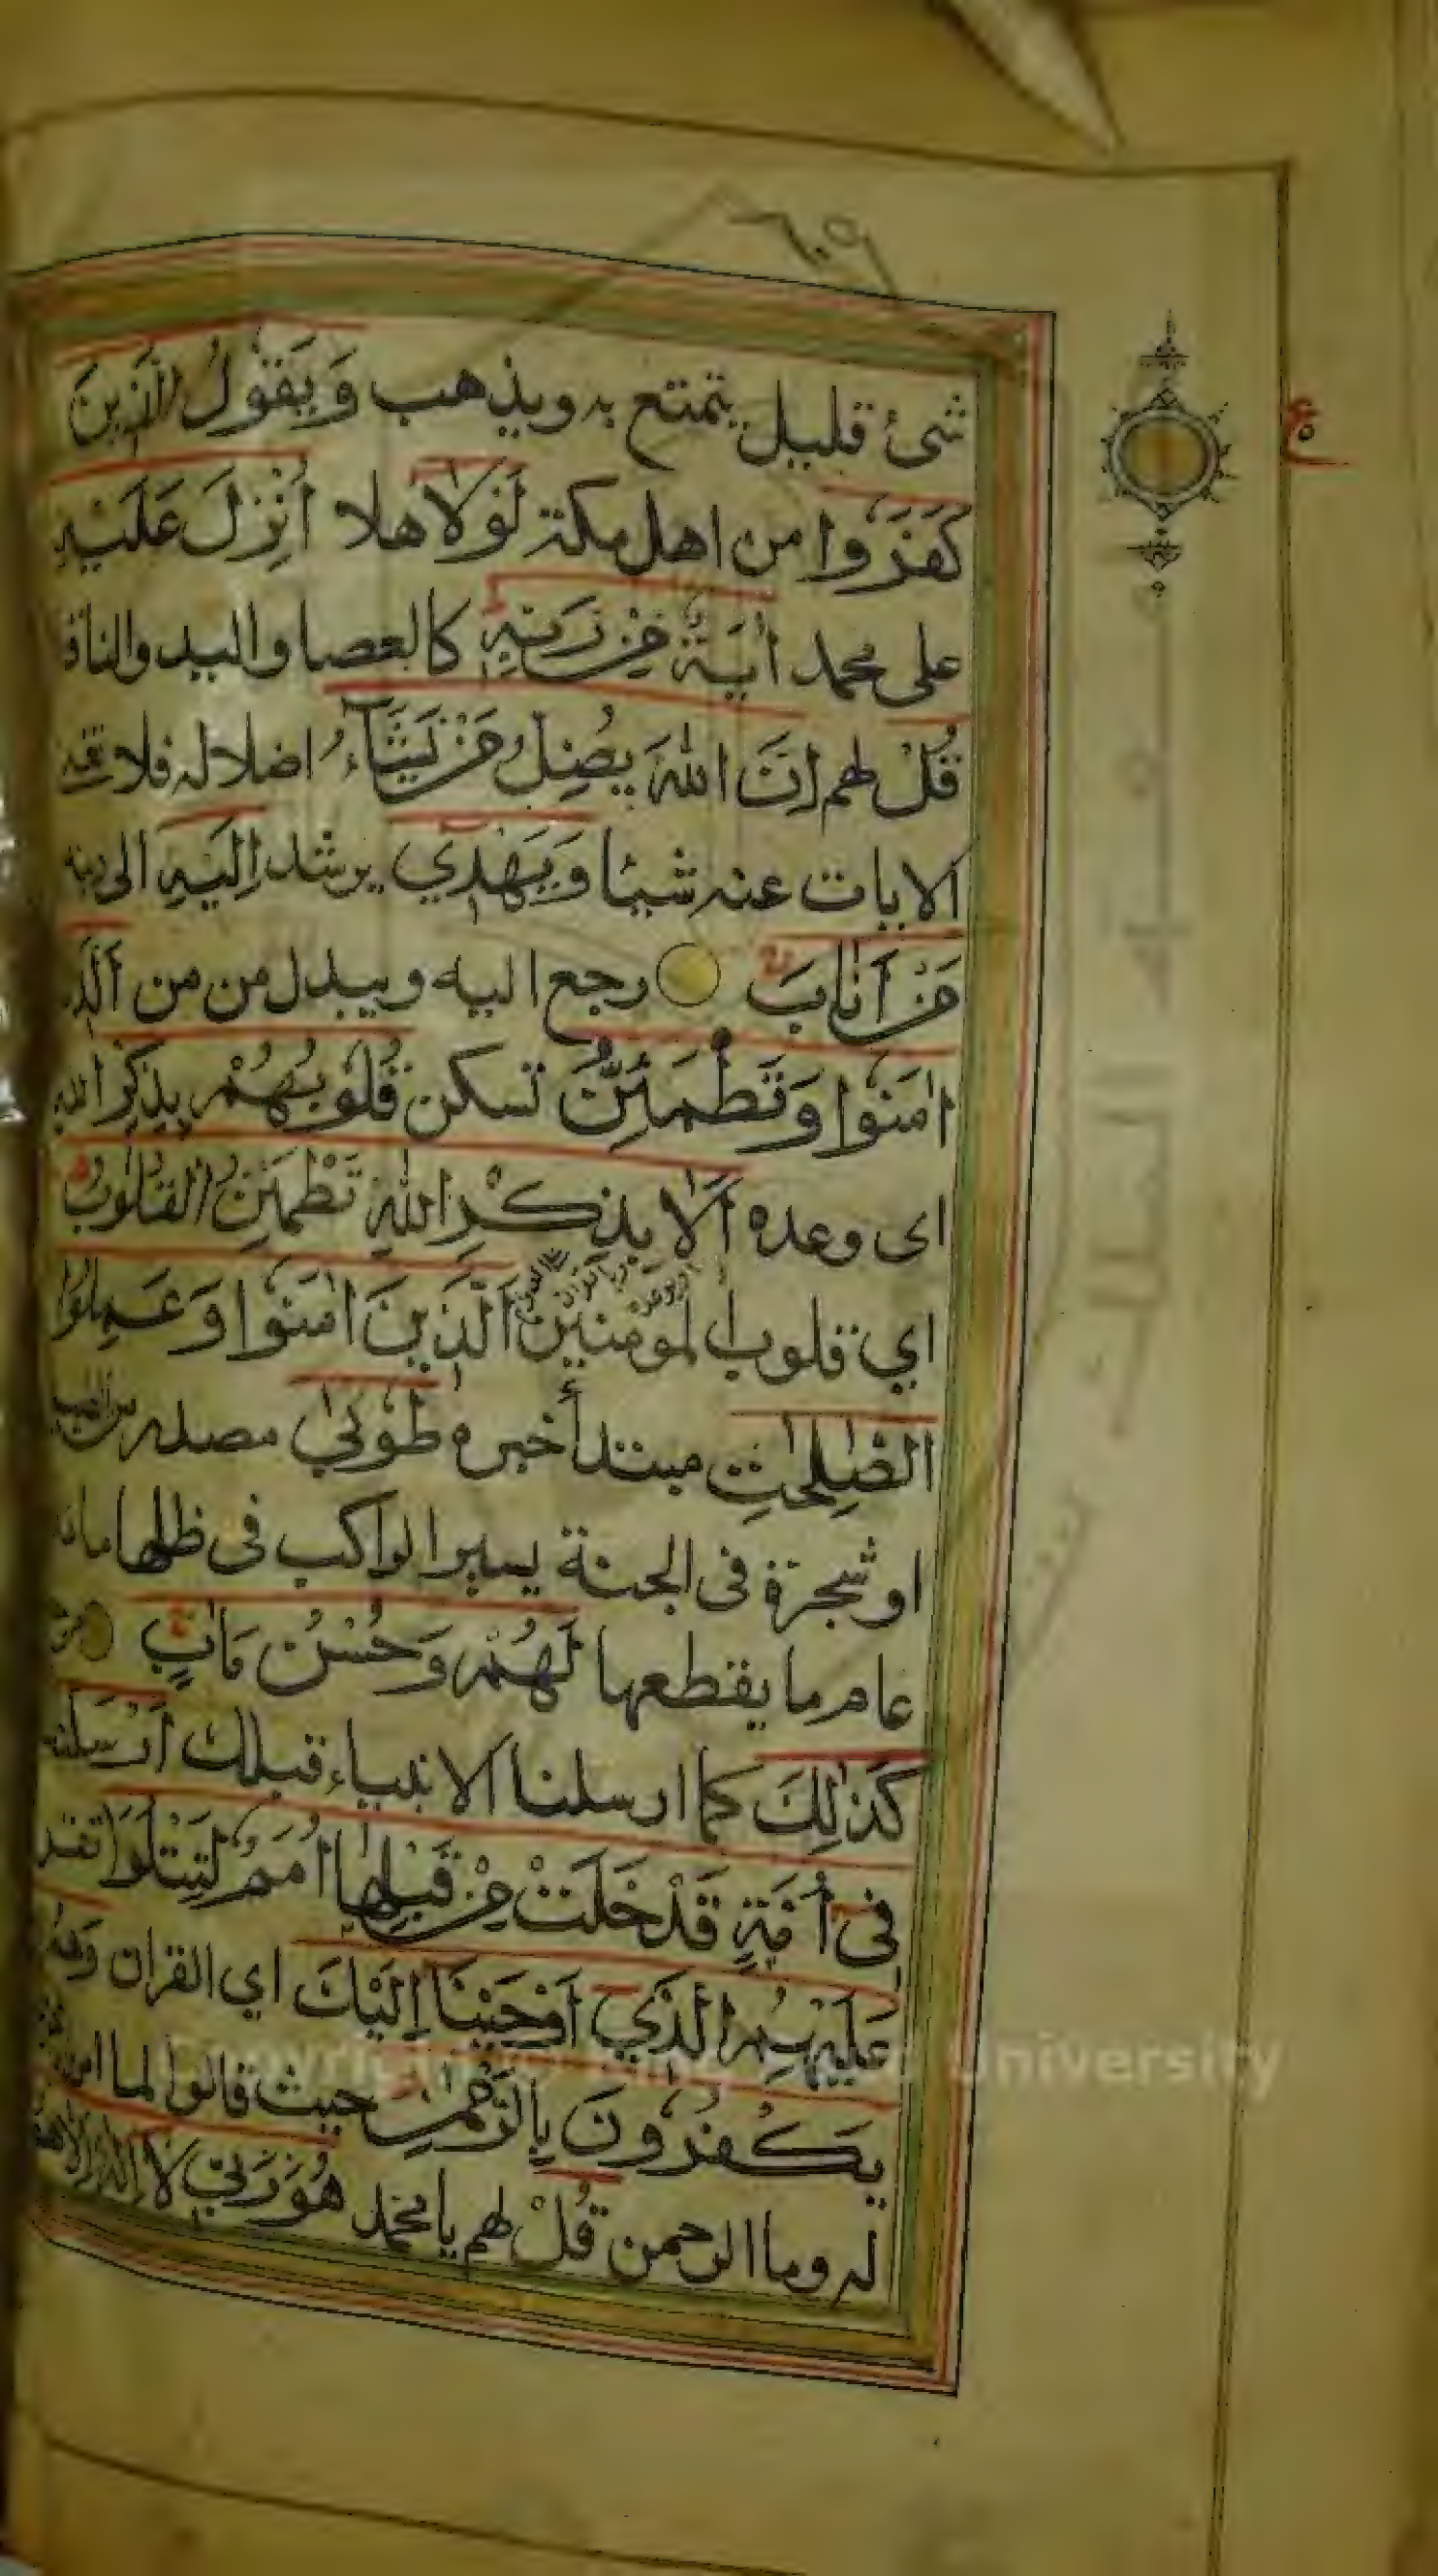 ٦٠٥
شئ قليل يتمتع به ويذهب وَيَقُولُ الَّذِينَ
كَفَرُوا من اهل مكة لَوْلَا هلا أُنْزِلَ عَلَيْهِ
على محمد اٰيَةٌ مِنْ رَبِّهِ كالعصا واليد والناقة
قُلْ لهم إِنَّ اللّٰهَ يُضِلُّ مَنْ يَشَآءُ اضلاله فلا تغنه
الايات عنه شيئا وَيَهْدِي يرشد إِلَيْهِ الى دينه
مَنْ أَنَابَ رجع اليه ويبدل من من اَلَّذِ
اٰمَنُوا وَتَطْمَئِنُّ تسكن قُلُوبُهُمْ بِذِكْرِ الله
اى وعده أَلَا بِذِكْرِ اللّٰهِ تَطْمَئِنُّ الْقُلُوبُ
اي قلوب المومنين اَلَّذِينَ اٰمَنُوا وَعَمِلُوا
الصّٰلِحٰتِ مبتدأ خبره طُوبٰى مصدر من الطيب
او شجرة فى الجنة يسير الراكب فى ظلها مائة
عام ما يقطعها لَهُمْ وَحُسْنُ مَاٰبٍ
كَذٰلِكَ كما ارسلنا الانبياء قبلك أَرْسَلْنٰ
فِى أُمَّةٍ قَدْ خَلَتْ مِنْ قَبْلِهَا أُمَمٌ لِتَتْلُوَا تقر
عَلَيْهِمُ الَّذِي أَوْحَيْنَا إِلَيْكَ اي القران وَهُمْ
يَكْفُرُونَ بِالرَّحْمٰنِ حيث قالوا لما امروا
له وما الرحمن قُلْ لهم يا محمد هُوَ رَبِّي لَا إِلٰهَ إِلَّا هُوَ
University